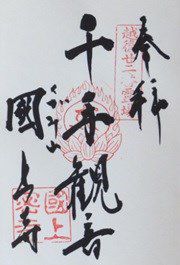 奉拝
越後廿二番霊場
千手觀音
くがみ山
國上寺
國上